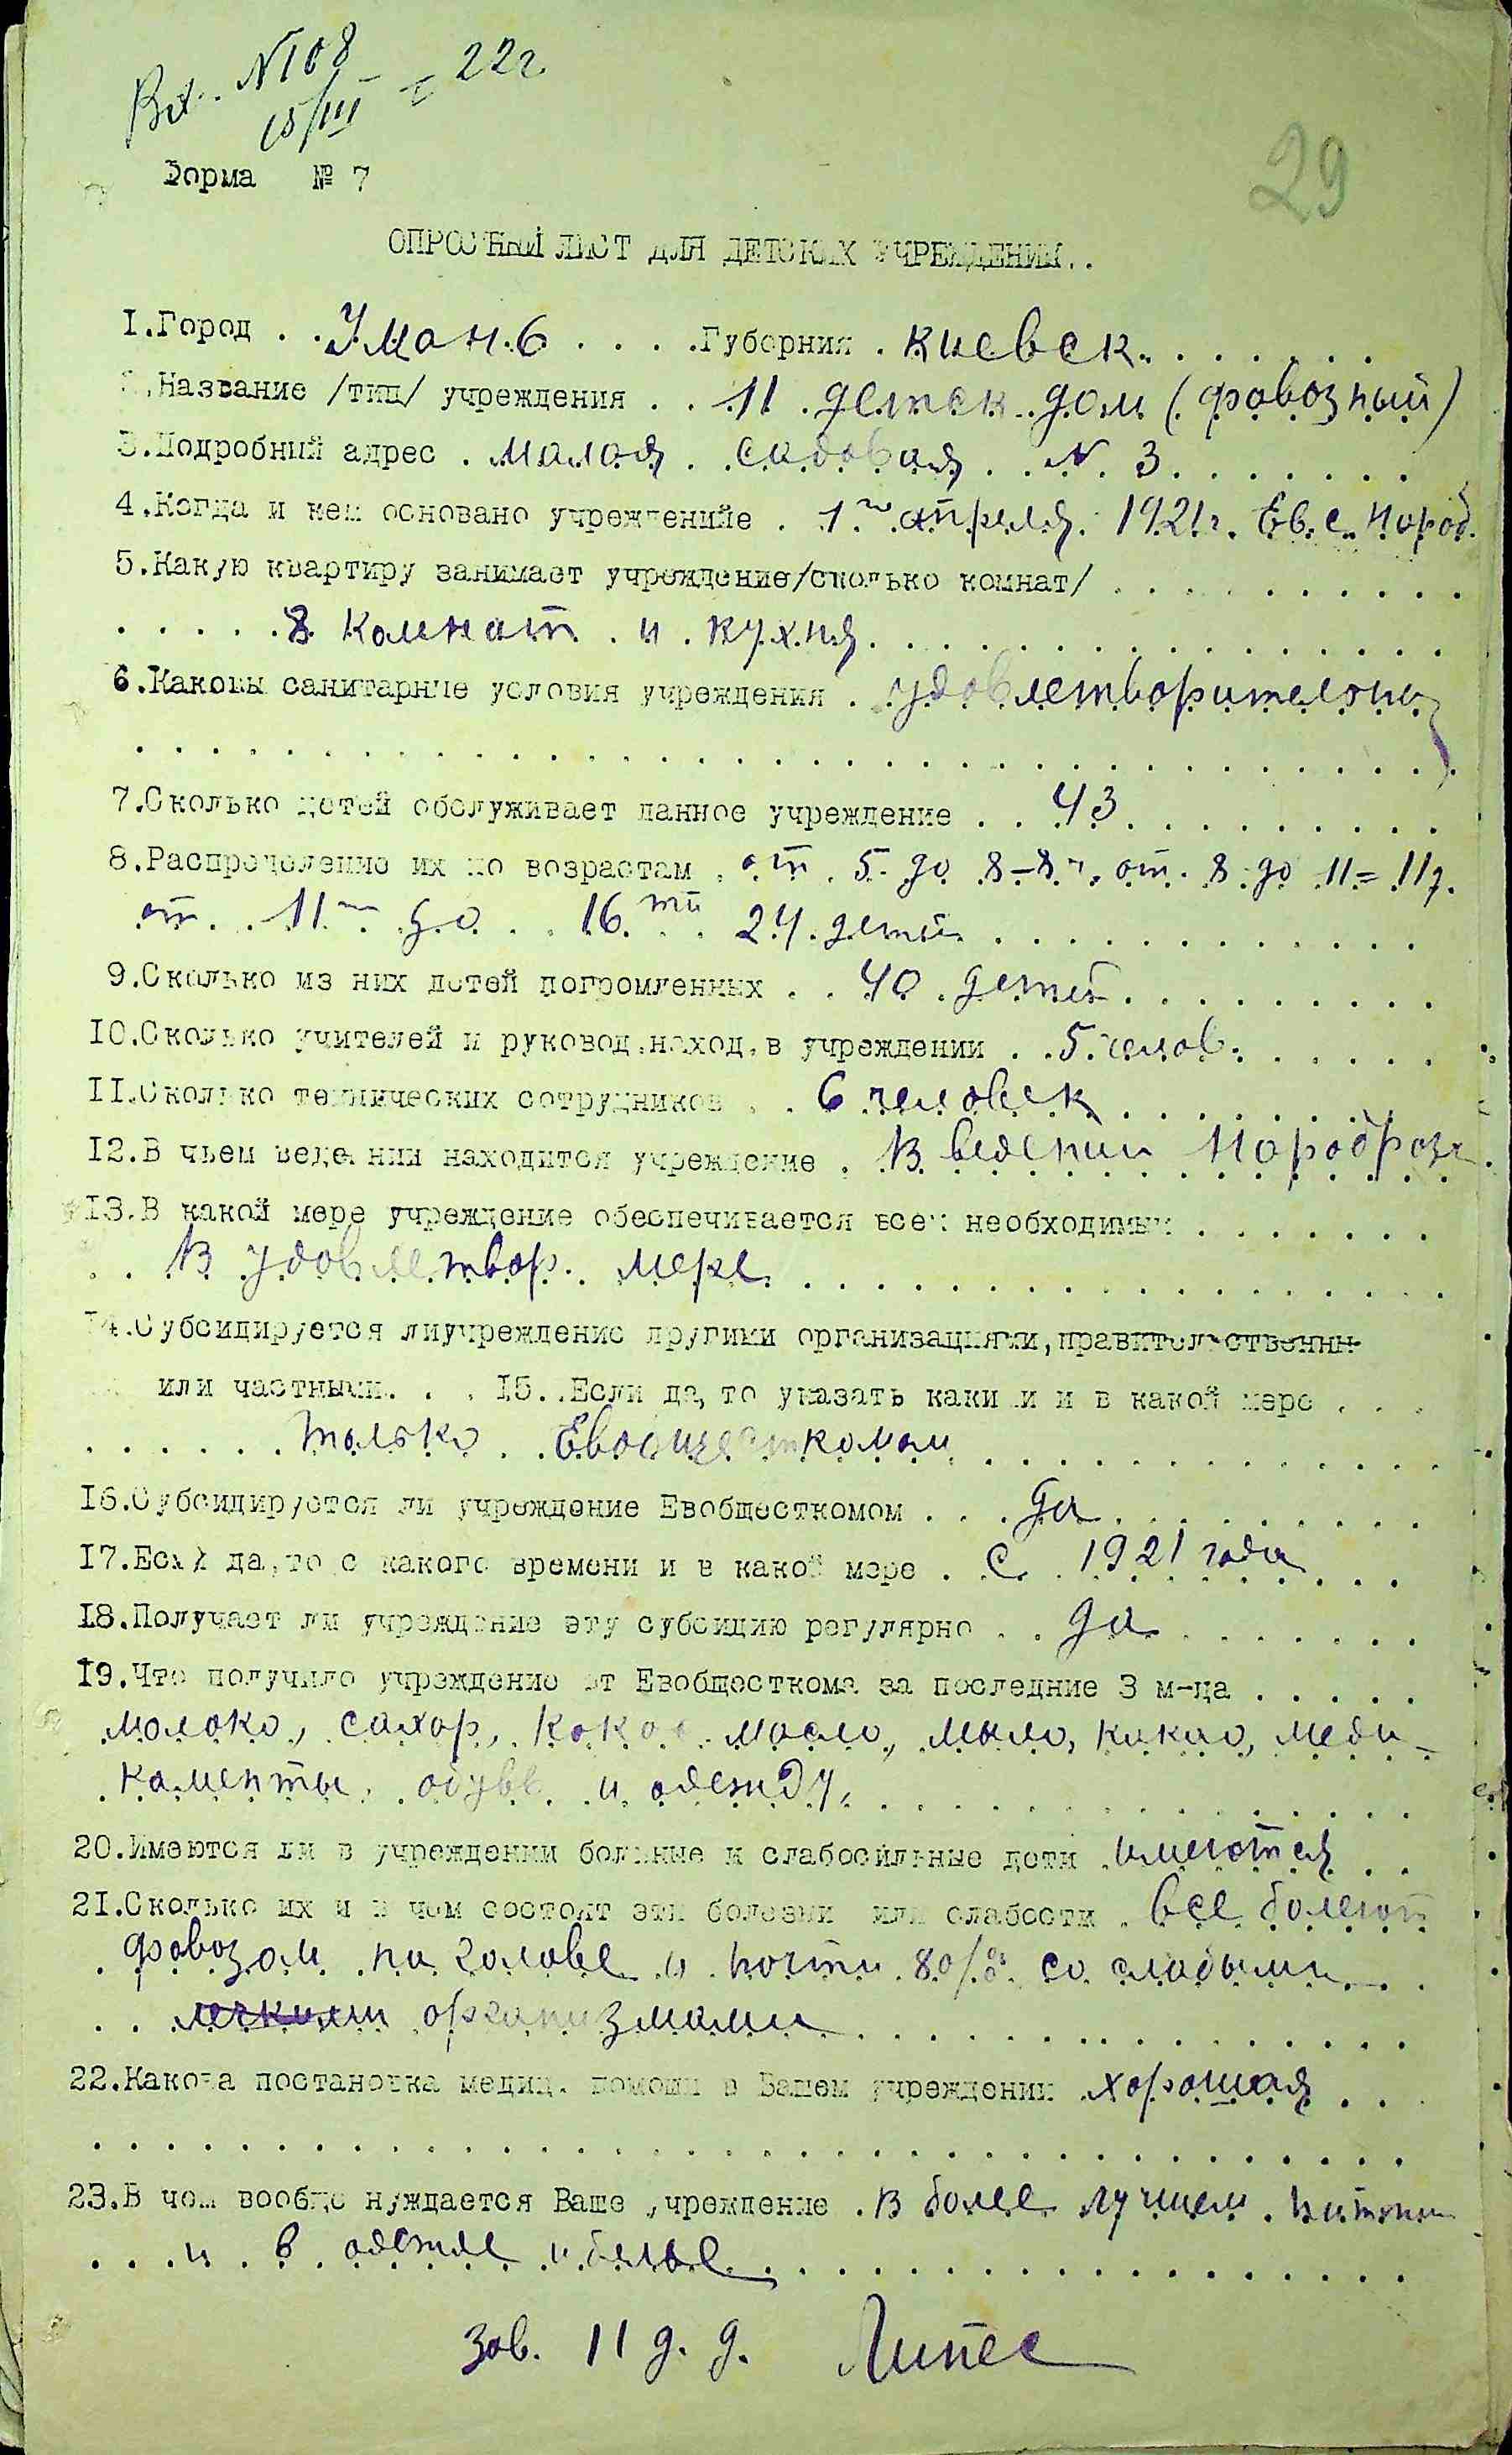 Вх. №108 15/III – 22г.
29
Форма № 7
ОПРОСНЫЙ ЛИСТ ДЛЯ ДЕТСКИХ УЧРЕЖДЕНИЙ..
I.Город . . Умань . . . . Губерния . Киевск. . . . . . .
2.Название /тип/ учреждения . . 11 детск. дом (фавозный)
3.Подробный адрес . Малая Садовая . . N. 3. . . . . . .
4.Когда и кем основано учреждение . 1го апреля. 1921г. Ев.с. Нароб.
5.Какую квартиру занимает учреждение/сколько комнат/ . . . . . . . . . .
. . . . . 8 комнат и кухня. . . . . . . . . . . . . . . .
6.Каковы санитарные условия учреждения . удовлетворительны
7.Сколько детей обслуживает данное учреждение . . 43 . . . . . . . . .
8.Распределение их по возрастам . от 5 до 8–8 ч. от 8 до 11=11д.
от . . 11ти до . . 16ти . . 24 детей . . . . . . . . . . . .
9.Сколько из них детей погромленных . . 40 детей . . . . . . . . .
10.Сколько учителей и руковод.наход.в учреждении . . 5 челов. . . . . . .
11.Сколько технических сотрудников . . 6 человек . . . . . . . . .
12.В чьем ведении находится учреждение . В ведении Наробраза.
13.В какой мере учреждение обеспечивается всем необходимым . . . . . . .
. . В удовлетвор. мере. . . . . . . . . . . . . . . . . .
14.Субсидируется лиучреждение другими организациями, правительственны
или частными. . . 15. .Если да, то указать каки и и в какой мере . . .
. . . . . . только Евобщесткомом . . . . . . . . . . . . .
16.Субсидируется ли учреждение Евобщесткомом . . . да . . . . . . . . .
17.Если да,то с какого времени и в какой мере . С 1921 года
18.Получает ли учреждение эту субсидию регулярно . . да . . . . . . .
19.Что получило учреждение от Евобщесткома за последние 3 м-ца . . . . .
молоко, сахар, кокос. масло, мыло, какао, меди-
каменты, обувь и одежду. . . . . . . . . . . . . .
20.Имеются ли в учреждении больные и слабосильные дети . имеются . .
21.Сколько их и в чем состоит эти болезни или слабости . все болеют
. фавозом на голове и почти 80% со слабыми . .
. . легкими организмами . . . . . . . . . . . . . .
22.Какова постановка медиц. помощи в Вашем учреждении . хорошая . . .
23.В чем вообще нуждается Ваше учреждение . В более лучшем питании
. . . и в одежде и белье . . . . . . . . . . . . . . . .
Зав. 11 д. д. Липес